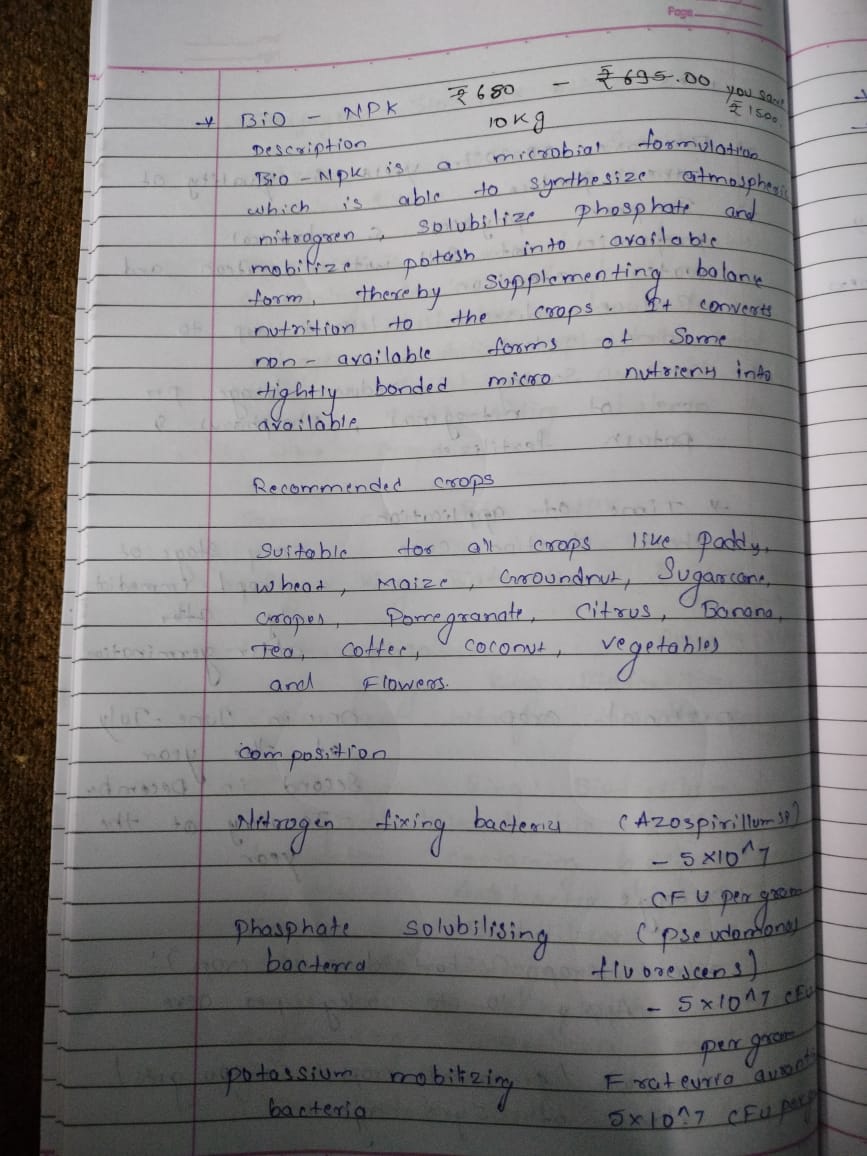 Page
→ BiO - NPK ₹680 - ₹695.00 you save
10Kg ₹1500
Description
Bio - Npk is a microbial formulation
which is able to synthesize atmospheric
nitrogren, solubilize phosphate and
mobilize potash into available
form, thereby supplementing balanc
nutrition to the crops. It converts
non - available forms of Some
tightly bonded micro nutrients into
available
Recommended crops
Suitable for all crops like paddy,
wheat, Maize, Groundnut, Sugarcane,
Grapes, Pomegranate, Citrus, Banana,
Tea, coffee, coconut, vegetables
and Flowers.
composition
Nitrogen fixing bacteria (Azospirillum sp)
- 5×10^7
CFU per gram
phasphate solubilising (pseudomonas
bacteria fluorescens)
- 5×10^7 CFU
per gram
potassium mobilizing Frateuria auranti
bacteria 5×10^7 CFU per g